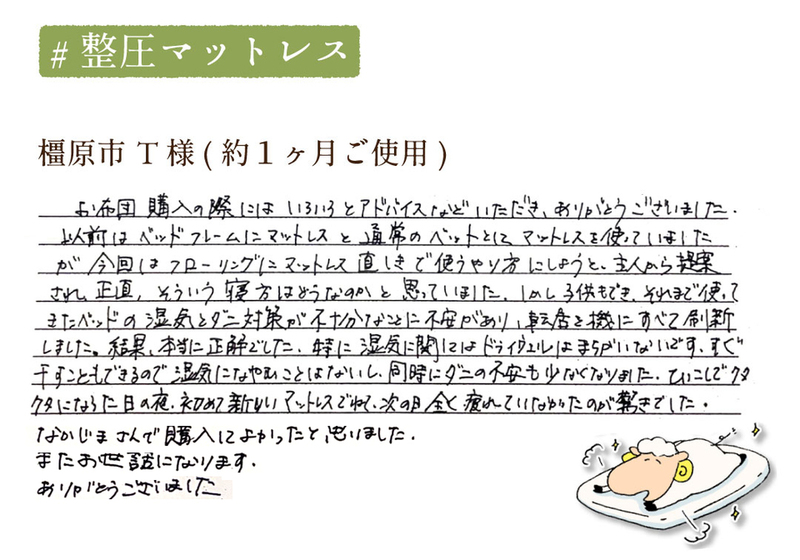 # 整圧マットレス
橿原市 T 様 ( 約１ヶ月ご使用 )
お布団 購入の際には いろいろとアドバイスなどいただき、ありがとうございました。
以前は ベッドフレームにマットレスと 通常の ベットとして マットレスを使っていました
が 今回は フローリングにマットレス 直しきで使うやり方 にしようと、主人から提案
され 正直、そういう 寝方はどうなのかと 思っていました。しかし 子供もでき、それまで使って
きたベッドの 湿気とダニ対策が 不十分なことに不安があり、転居を機に すべて 刷新
しました。結果、本当に正解でした。特に 湿気に関しては ドライダエルは まちがいないです。すぐ
干すこともできるので 湿気になやむことはないし、同時にダニの不安も少なくなりました。ひっこしでクタ
クタになった日の夜、初めて新しい マットレスでねて、次の日 全く 疲れていなかったのが 驚きでした。
なかじまさんで購入してよかったと思いました。
またお世話になります。
ありがとうございました